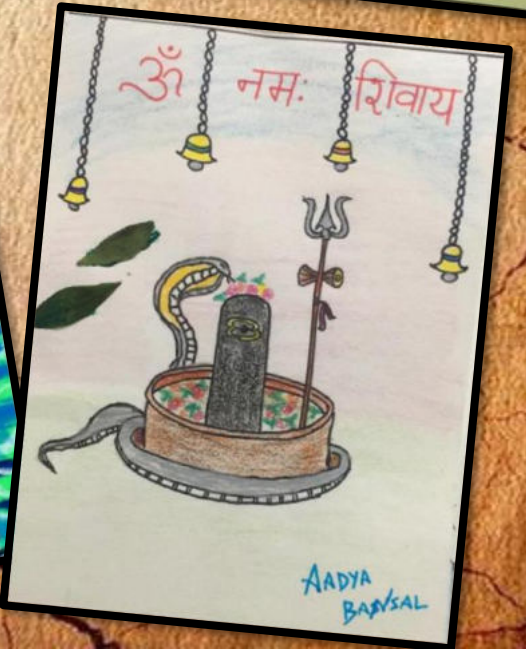 ॐ नमः शिवाय
AADYA
BANSAL